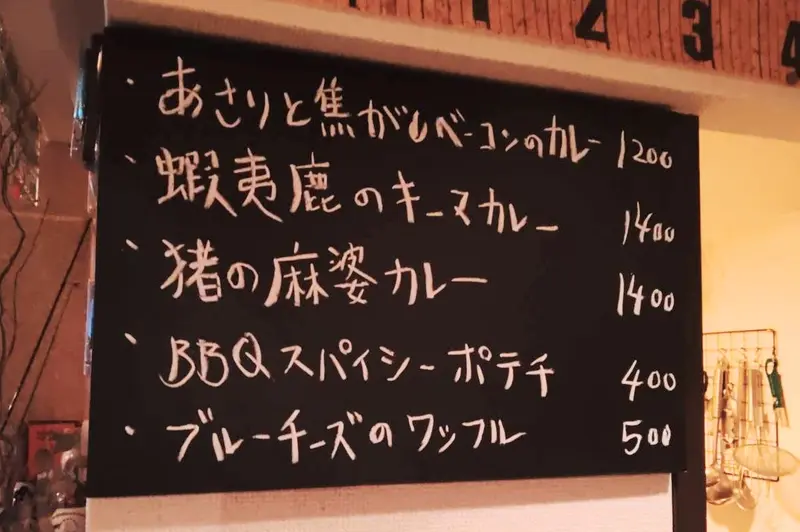 1 2 3 4
・あさりと焦がしベーコンのカレー 1200
・蝦夷鹿のキーマカレー 1400
・猪の麻婆カレー 1400
・BBQスパイシーポテチ 400
・ブルーチーズのワッフル 500